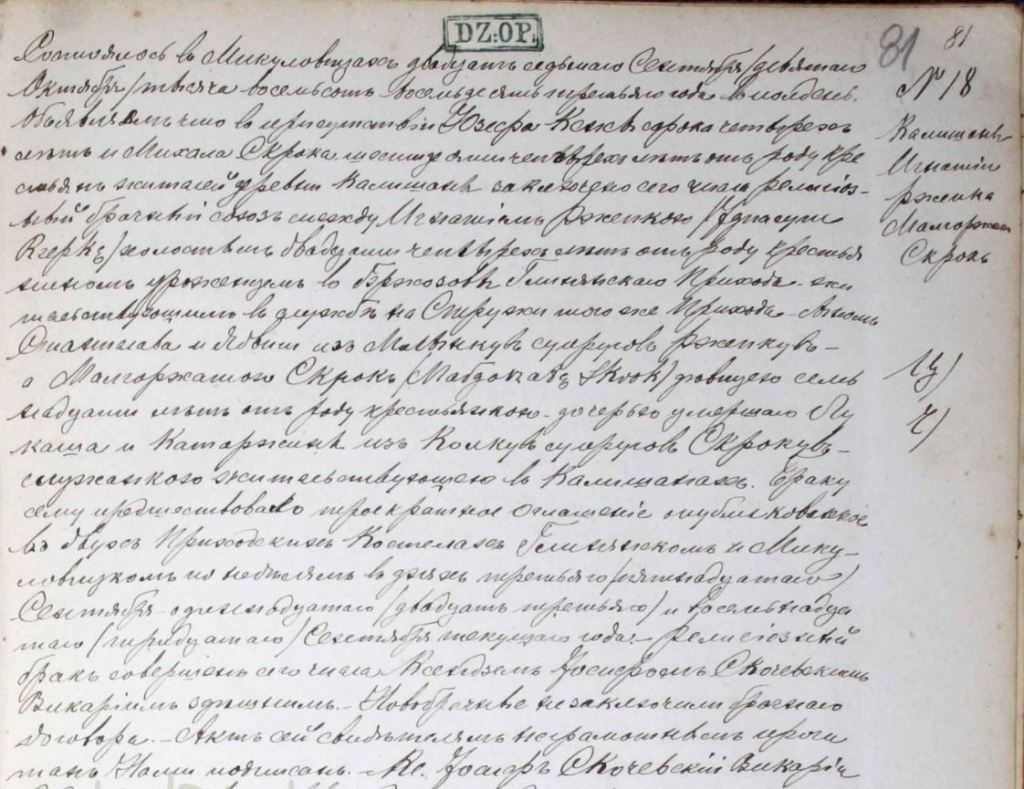 DZ:OP.
81
81
Состоялось в Микуловицахъ двадцать седьмаго Сентября /девятаго
Октября/ тысяча восемьсотъ восемьдесятъ третьяго года в полдень.
Объявляемъ что в присутствіи Юзефа сорока четырехъ
лѣтъ и Михала Скрока шестидесяти четырехъ лѣтъ отъ роду кре
стьянъ жителей деревни Калишанъ заключено сего числа религіоз-
ный брачный союзъ между Игнатіемъ Ржепкою /Ignacym
Rzepką/ холостымъ двадцати четырехъ лѣтъ отъ роду крестья
ниномъ урожденцемъ въ Бржозовѣ Глинянскаго Прихода жи
тельствующимъ в службѣ на Стружи того же Прихода - Сыномъ
Станислава и Ядвиги изъ супруговъ Ржепкувъ -
а Малгоржатою Скрокъ /Małgorzatą Skrok/ дѣвицею семь
надцати лѣтъ отъ роду крестьянкою - дочерью умершаго Лу
каша и Катаржины изъ Колкувъ супруговъ Скрокувъ -
служанкою жительствующею в Калишанахъ. Браку
сему предшествовало троекратное оглашеніе опубликованное
въ двухъ Приходскихъ Костелахъ Глинянскомъ и Мику-
ловицкомъ по недѣлямъ в дняхъ третьяго /пятнадцатаго/
Сентября - одиннадцатаго /двадцать третьяго/ и восемьнадца
таго /тридцатаго/ Сентября текущаго года. - Религіозный
бракъ совершенъ сего числа Ксендземъ Іосифомъ Скочевскимъ
Викаріемъ здешнимъ. - Новобрачные не заключили брачнаго
договора. - Актъ сей свидѣтелямъ неграмотнымъ прочи
танъ Нами подписанъ. - Кс. Іосифъ Скочевскій Викарій
№ 18
Калишаны
Игнатій
Ржепка
Малгоржата
Скрокъ